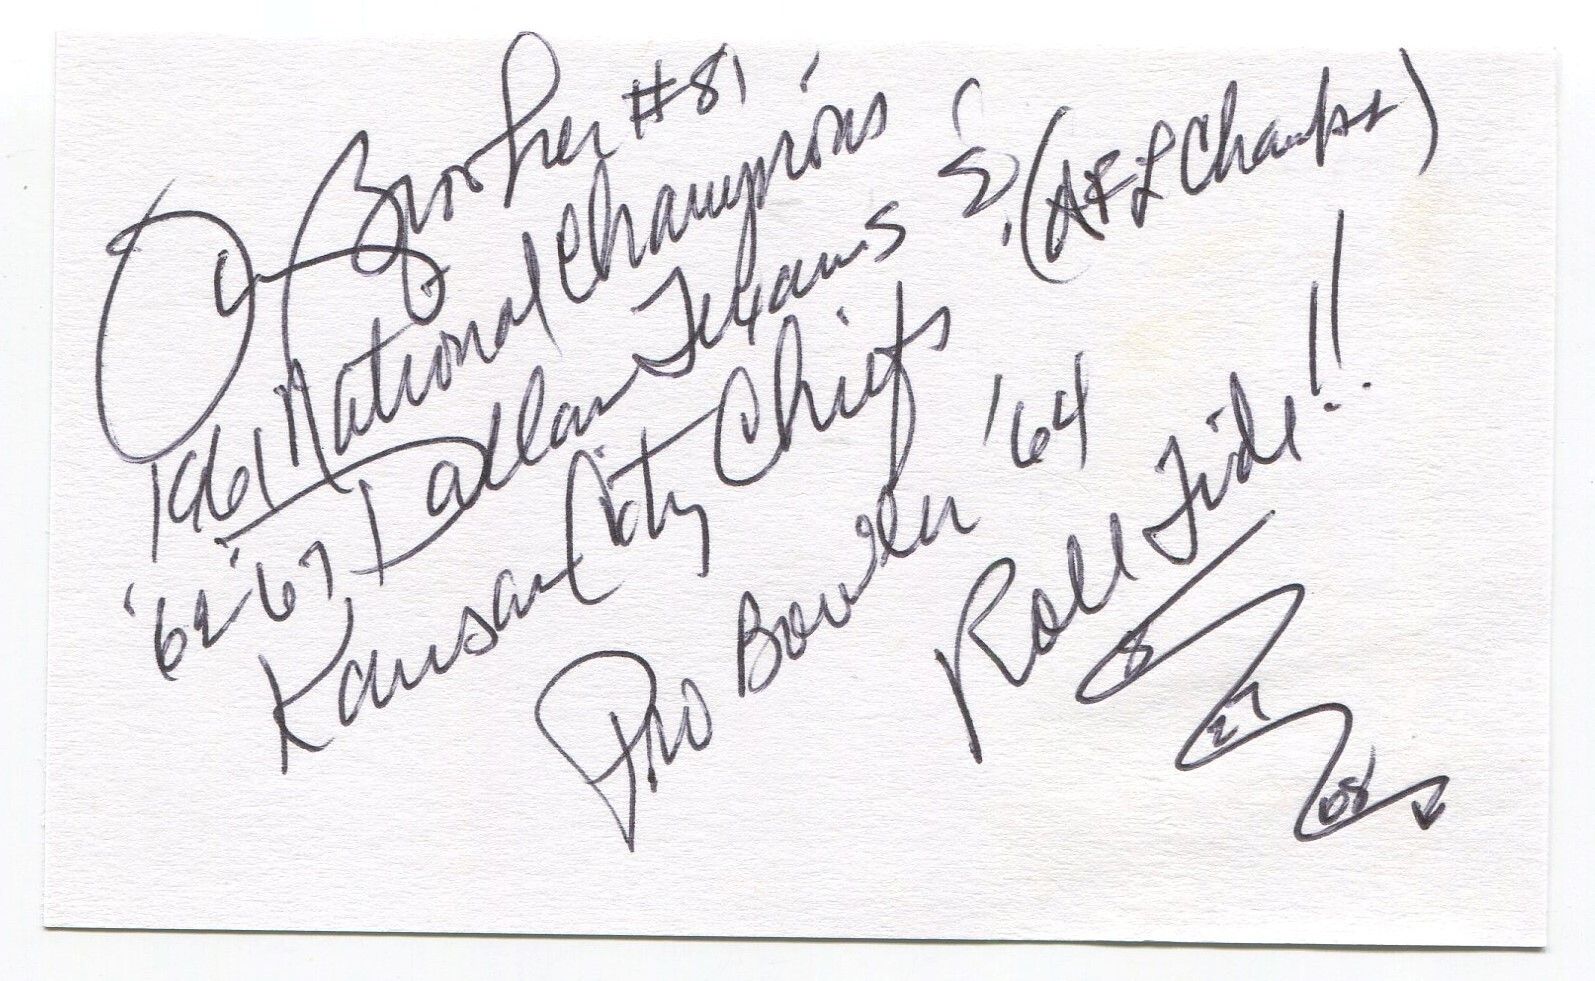 Brooker #81
1961 National Champions
'62-'67 Dallas Texans & (AFL Champs)
Kansas City Chiefs
Pro Bowler '64
Roll Tide!!
8
27
08